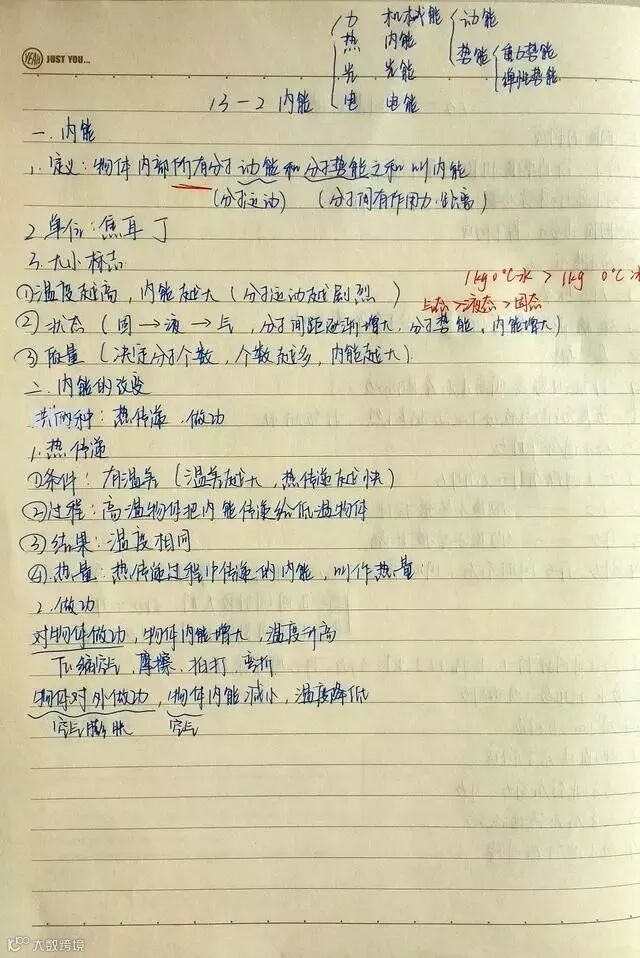 力 机械能 动能
热 内能 势能 重力势能
光 光能 弹性势能
电 电能
YEAH JUST YOU...
13-2 内能
一.内能
1.定义:物体内部所有分子动能和分子势能之和叫内能
(分子运动) (分子间有作用力.距离)
2.单位:焦耳 J
3.大小标志
1kg 0℃水 > 1kg 0℃冰
①温度越高,内能越大(分子运动越剧烈)
气态>液态>固态
②状态(固→液→气,分子间距逐渐增大,分子势能,内能增大)
③质量(决定分子个数,个数越多,内能越大)
二.内能的改变
共两种:热传递.做功
1.热传递
①条件:有温差(温差越大,热传递越快)
②过程:高温物体把内能传递给低温物体
③结果:温度相同
④热量:热传递过程中传递的内能,叫作热量
2.做功
对物体做功,物体内能增大,温度升高
压缩空气.摩擦.拍打.弯折
物体对外做功,物体内能减小,温度降低
空气膨胀 空气
大数跨境